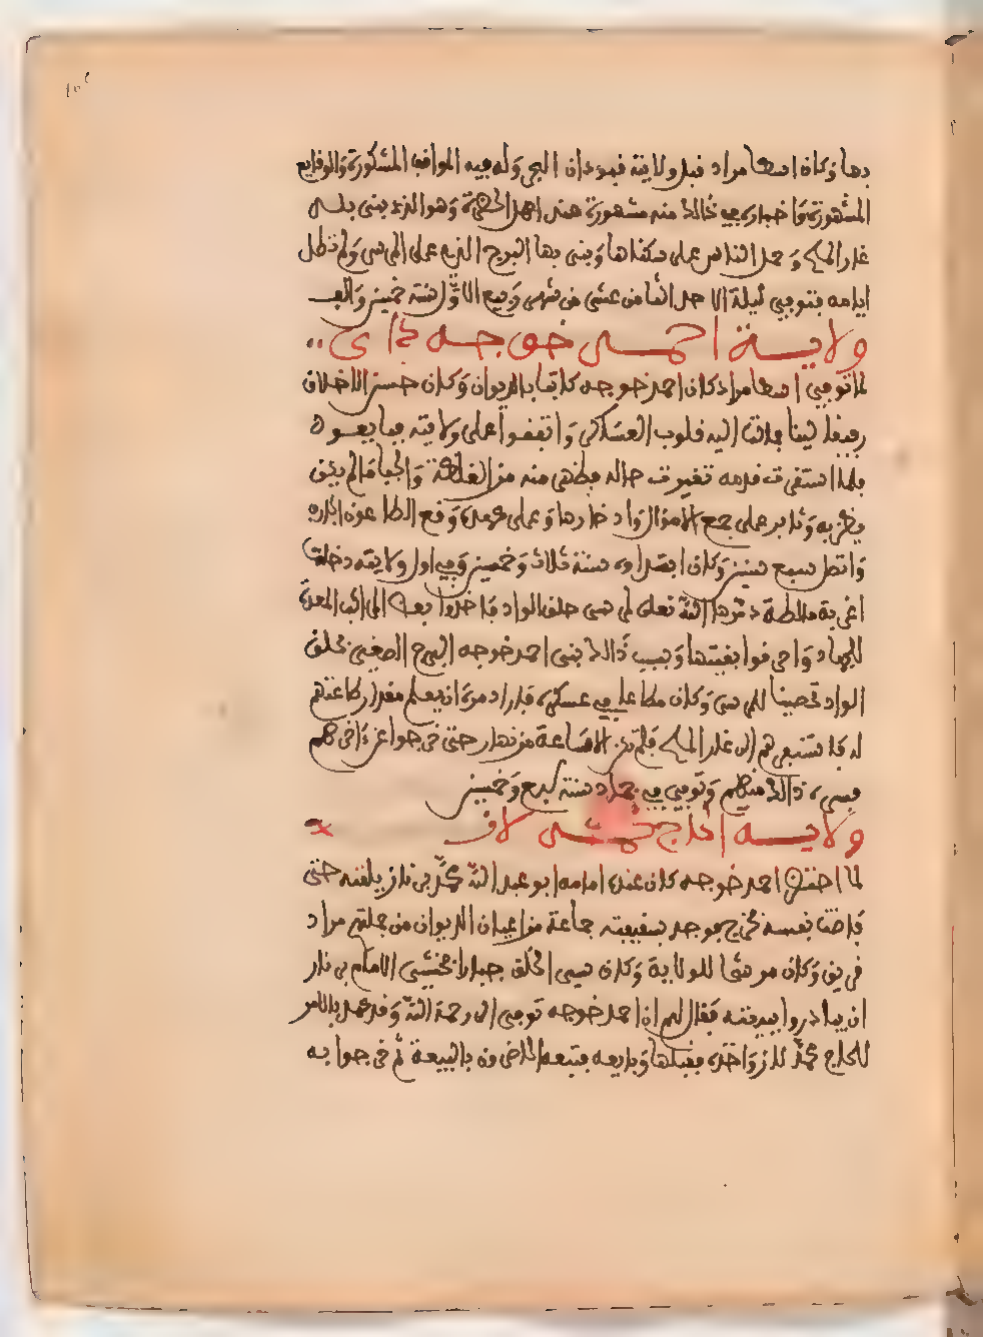 بها وكان اسطا مراد قبل ولايته قبودان البحر وله فيه المواقف المشكورة والوقايع
المشهورة واخباره في ذالك منه مشهورة عند اهل الحضرة وهو الذي بنى بلد
غار الملح وحمل الناس على سكناها وبنى بها البرج الذي على المرسى ولم تطل
ايامه فتوفي ليلة الاحد الثامن عشر من شهر ربيع الاول سنة خمسين والف
ولاية احمد خوجه داي
لما توفي اسطا مراد كان احمد خوجه كاتبا بالديوان وكان حسن الاخلاق
رفيقا لينا فمالت اليه قلوب العساكر واتفقوا على ولايته فبايعوه
فلما استقرت قدمه تغيرت حاله فظهر منه من الغلظة والجبا ما لم يكن
يظن به وثابر على جمع الاموال وادخارها وعلى عهده وقع الطاعون الجارف
واتصل سبع سنين وكان ابتداوه سنة ثلاث وخمسين وفي اول ولايته دخلت
اغربة مالطة دمرها الله تعلى لمرسى حلق الواد فاخذوا بعض المراكب المعدة
للجهاد واحرقوا بقيتها وبسبب ذالك بنى احمد خوجه البرج الصغير بحلق
الواد تحصينا للمرسى وكان مطاعا في عسكره فاراد مرة ان يعلم مقدار طاعتهم
له فاستنفرهم الى غار الملح فلم تكن الا ساعة من نهار حتى خرجوا عن ءاخرهم
فسره ذالك منهم وتوفي في سنة سبع وخمسين
ولاية الحاج محمد لاز
لما احتضر احمد خوجه كان عنده امامه ابو عبد الله محمد بن نار يلقنه حتى
فاضت نفسه فخرج فوجد بسقيفته جماعة من اعيان الديوان من جملتهم مراد
فريق وكان مرشحا للولاية وكان سيء الخلق جبارا فخشي الامام بن نار
ان يبادروا ببيعته فقال لهم ان احمد خوجه توفي الى رحمة الله وقد عهد بالامر
للحاج محمد لاز واخذه فقبلها وبايعه فتبعه الحاضرون بالبيعة ثم خرجوا به